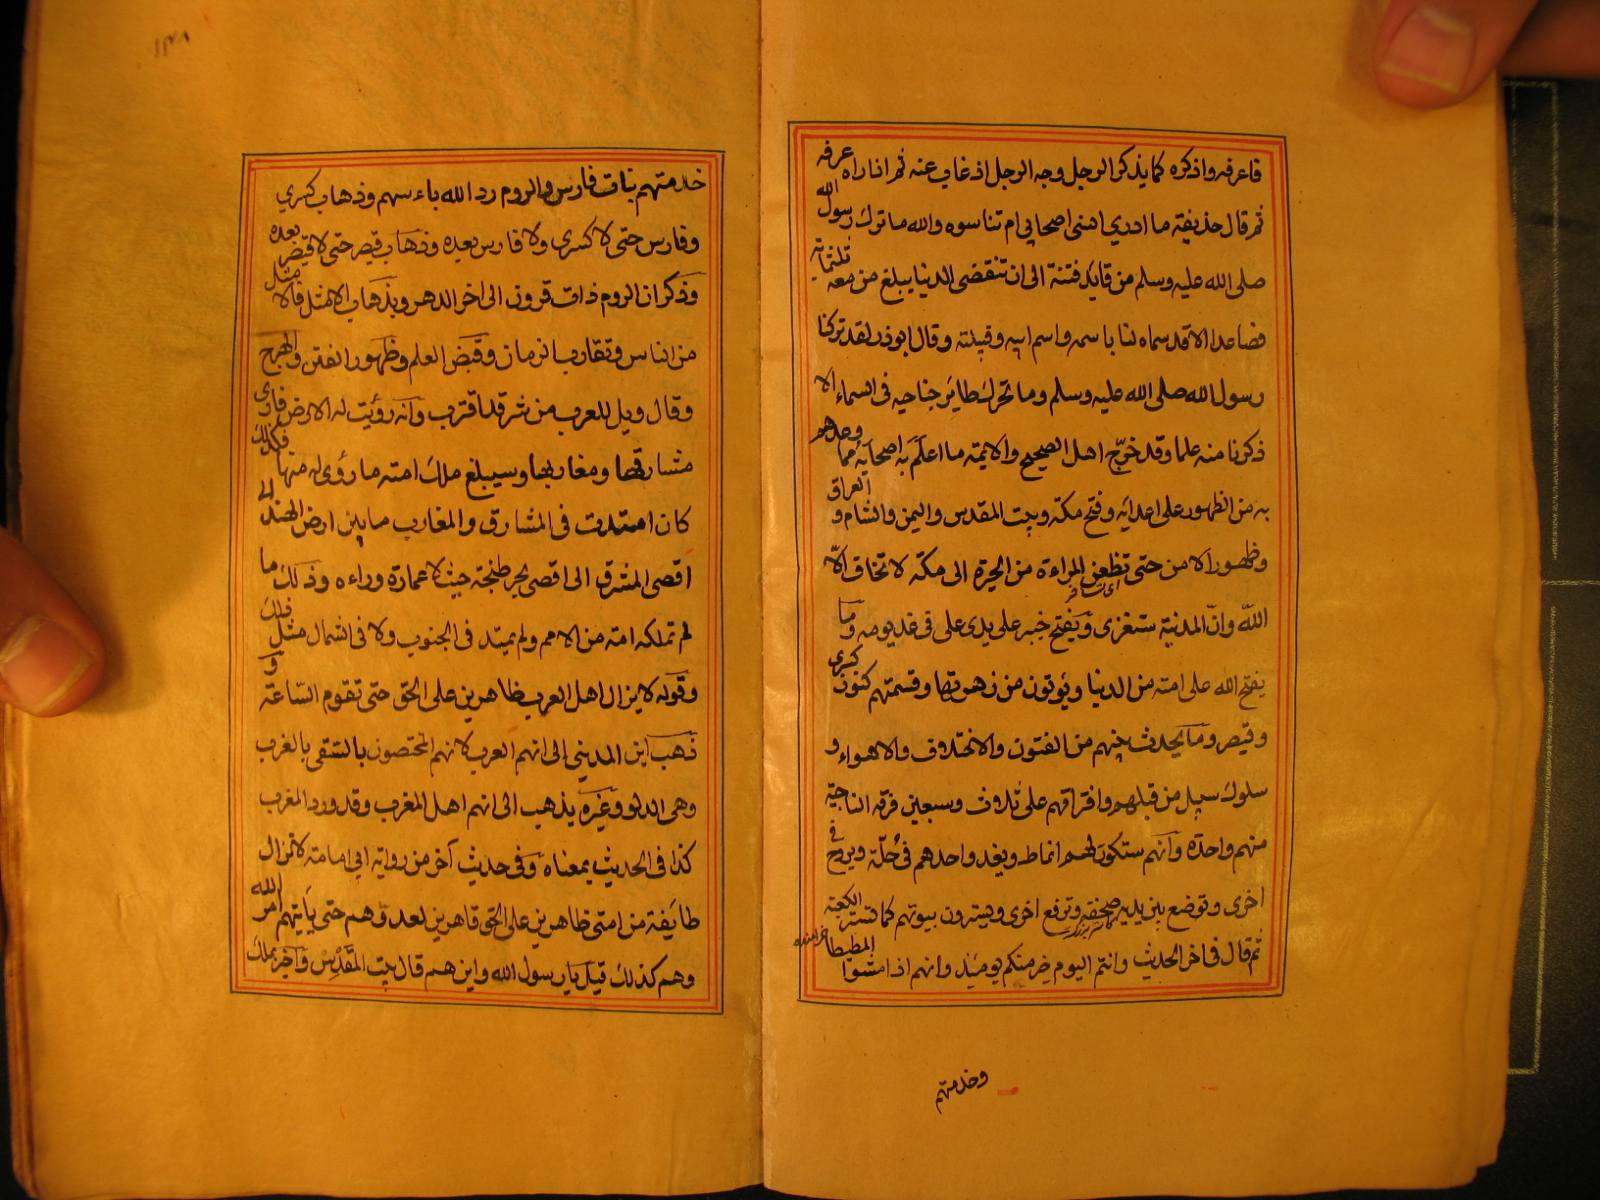 فاعرفه واذكره كما يذكر الرجل وجه الرجل اذ غاب عنه ثم اذا راه عرفه
ثم قال حذيفة ما ادري انسى اصحابي ام تناسوه والله ما ترك رسول الله
صلى الله عليه وسلم من قائد فتنة الى ان تنقضى الدنيا يبلغ من معه ثلثماية
فصاعدا الا قد سماه لنا باسمه واسم ابيه وقبيلته وقال ابوذر لقد تركنا
رسول الله صلى الله عليه وسلم وما تحرك طاير جناحيه فى السماء الا
ذكرنا منه علما وقد خرّج اهل الصحيح والايمة ما اعلم به اصحابه مما وعدهم
به من الظهور على اعدايه وفتح مكة وبيت المقدس واليمن والشام والعراق
وظهور الامن حتى تظعن المراءة من الحيرة الى مكة لا تخاف الّا
الله وانّ المدنية ستغزى ويفتح خيبر على يدى على فى غد يومه وما
يفتح الله على امته من الدنيا ويؤتون من زهرتها وقسمتهم كنوز كسرى
وقيصر وما يحدث بينهم من الفتون والاختلاف والاهواء و
سلوك سبيل من قبلهم وافتراقهم على ثلاث وسبعين فرقة الناجية
منهم واحدة وانهم ستكون لهم انماط ويغد واحدهم فى حلّة ويروح فى
اخرى وتوضع بين يديه صحفة وترفع اخرى ويسترون بيوتهم كما تستر الكعبة
ثم قال فى اخر الحديث وانتم اليوم خير منكم يومئذ وانهم اذا مشوا المطيطا
وخدمتهم
١٣٨
خدمتهم بنات فارس والروم رد الله باءسهم وذهاب كسري
وفارس حتى لا كسرى ولا فارس بعده وذهاب قيصر حتى لا قيصر بعده
وذكر ان الروم ذات قرون الى اخر الدهر وبذهاب الامثل فالامثل
من الناس وتقارب الزمان وقبض العلم وظهور الفتن والهرج
وقال ويل للعرب من شر قد اقترب وانه رؤيت له الارض فارى
مشارقها ومغاربها وسيبلغ ملك امته ما رؤى له منها فكذلك
كان امتدت فى المشارق والمغارب ما بين ارض الهند الى
اقصى المشرق الى اقصى بحر طنجة حيث لا عمارة وراءه وذلك ما
لم تملكه امة من الامم ولم يمتد فى الجنوب ولا فى الشمال مثل ذلك
وقوله لا يزال اهل العرب ظاهرين على الحق حتى تقوم السّاعة و
ذهب ابن المديني الى انهم العرب لانهم المختصون بالسقى بالغرب
وهى الدلو وغيره يذهب الى انهم اهل المغرب وقد ورد المغرب
كذا فى الحديث بمعناه وفى حديث آخر من رواية ابي امامة لا تزال
طايفة من امتى ظاهرين على الحق قاهرين لعدوّهم حتى يأتيهم امر الله
وهم كذلك قيل يا رسول الله واين هم قال بيت المقدس واخبر بملك